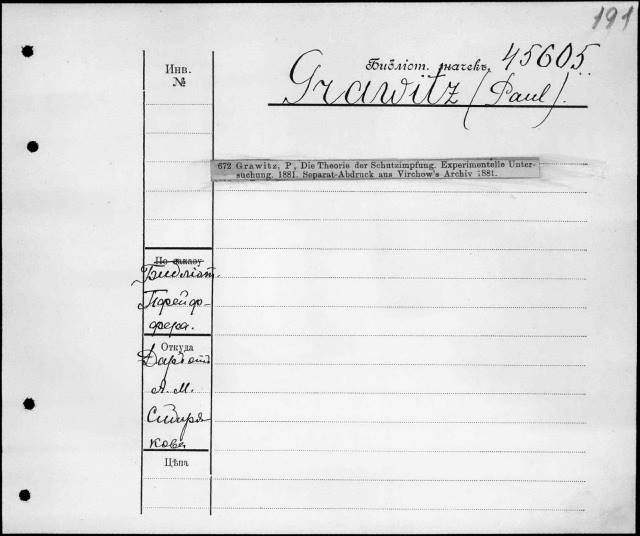 191
Библіот. значекъ 45605
Инв.
№
Grawitz (Paul).
672 Grawitz, P., Die Theorie der Schutzimpfung. Experimentelle Unter-
suchung. 1881. Separat-Abdruck aus Virchow's Archiv 1881.
По заказу
Библіот.
Пфейф-
фера.
Откуда
Даръ отъ
А. М.
Сибиря-
кова
Цѣна